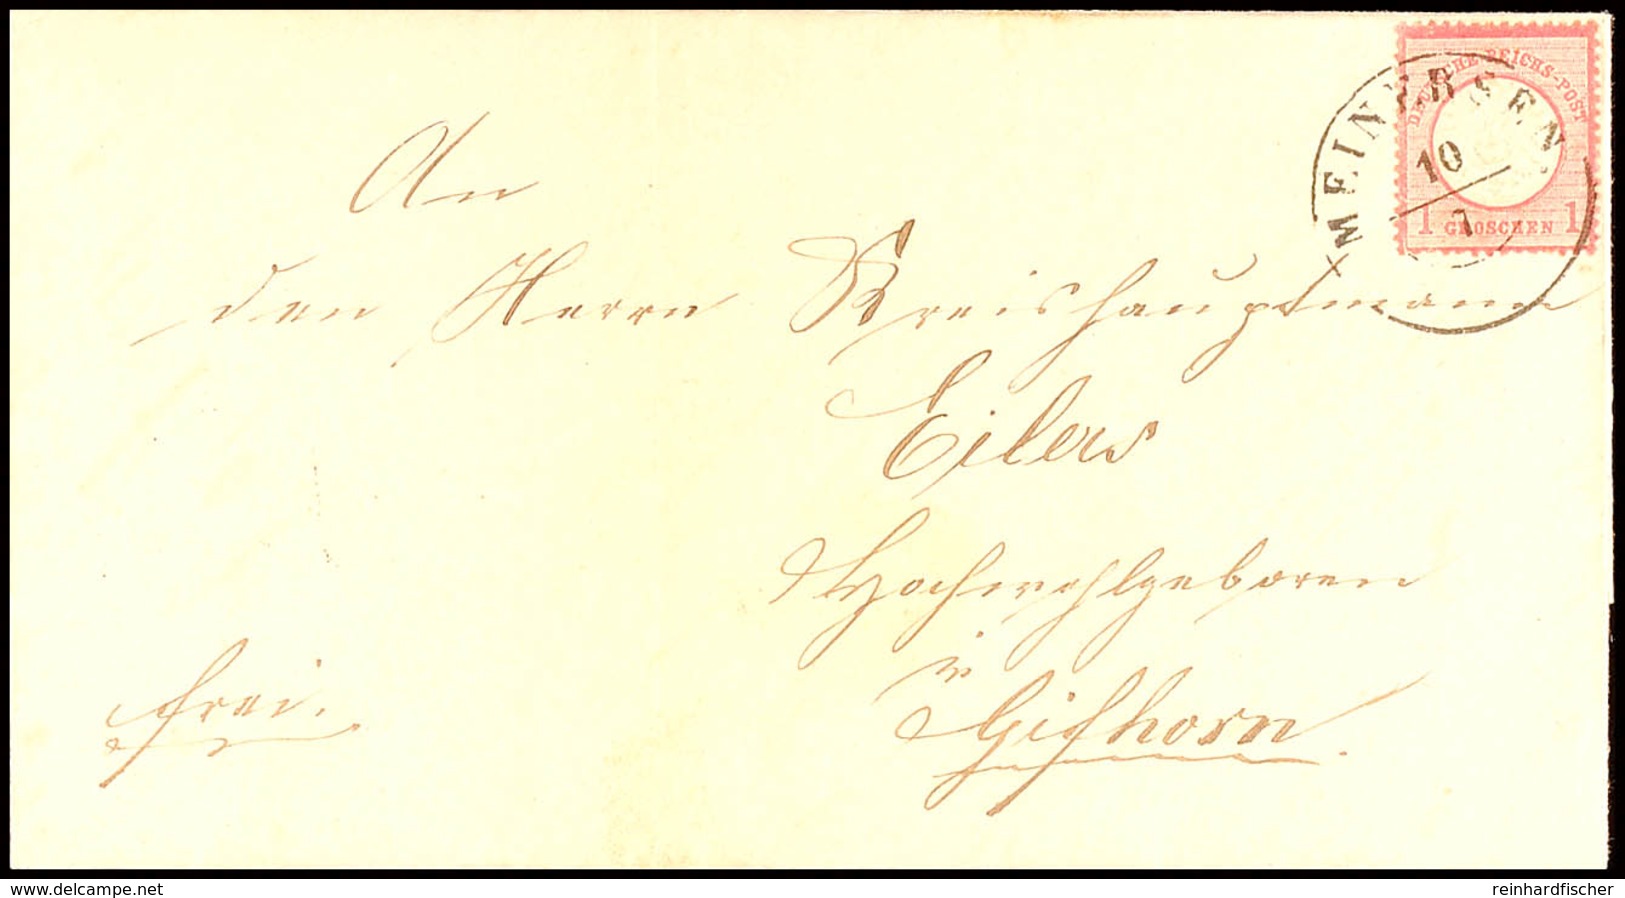 DEUTSCHE REICHS-POST
1 GROSCHEN 1
MEINERSEN
10
7
An
den Herrn Kreishauptmann
Eilers
Hochwohlgeboren
in
Gifhorn
frei.
www.delcampe.net
reinhardfischer